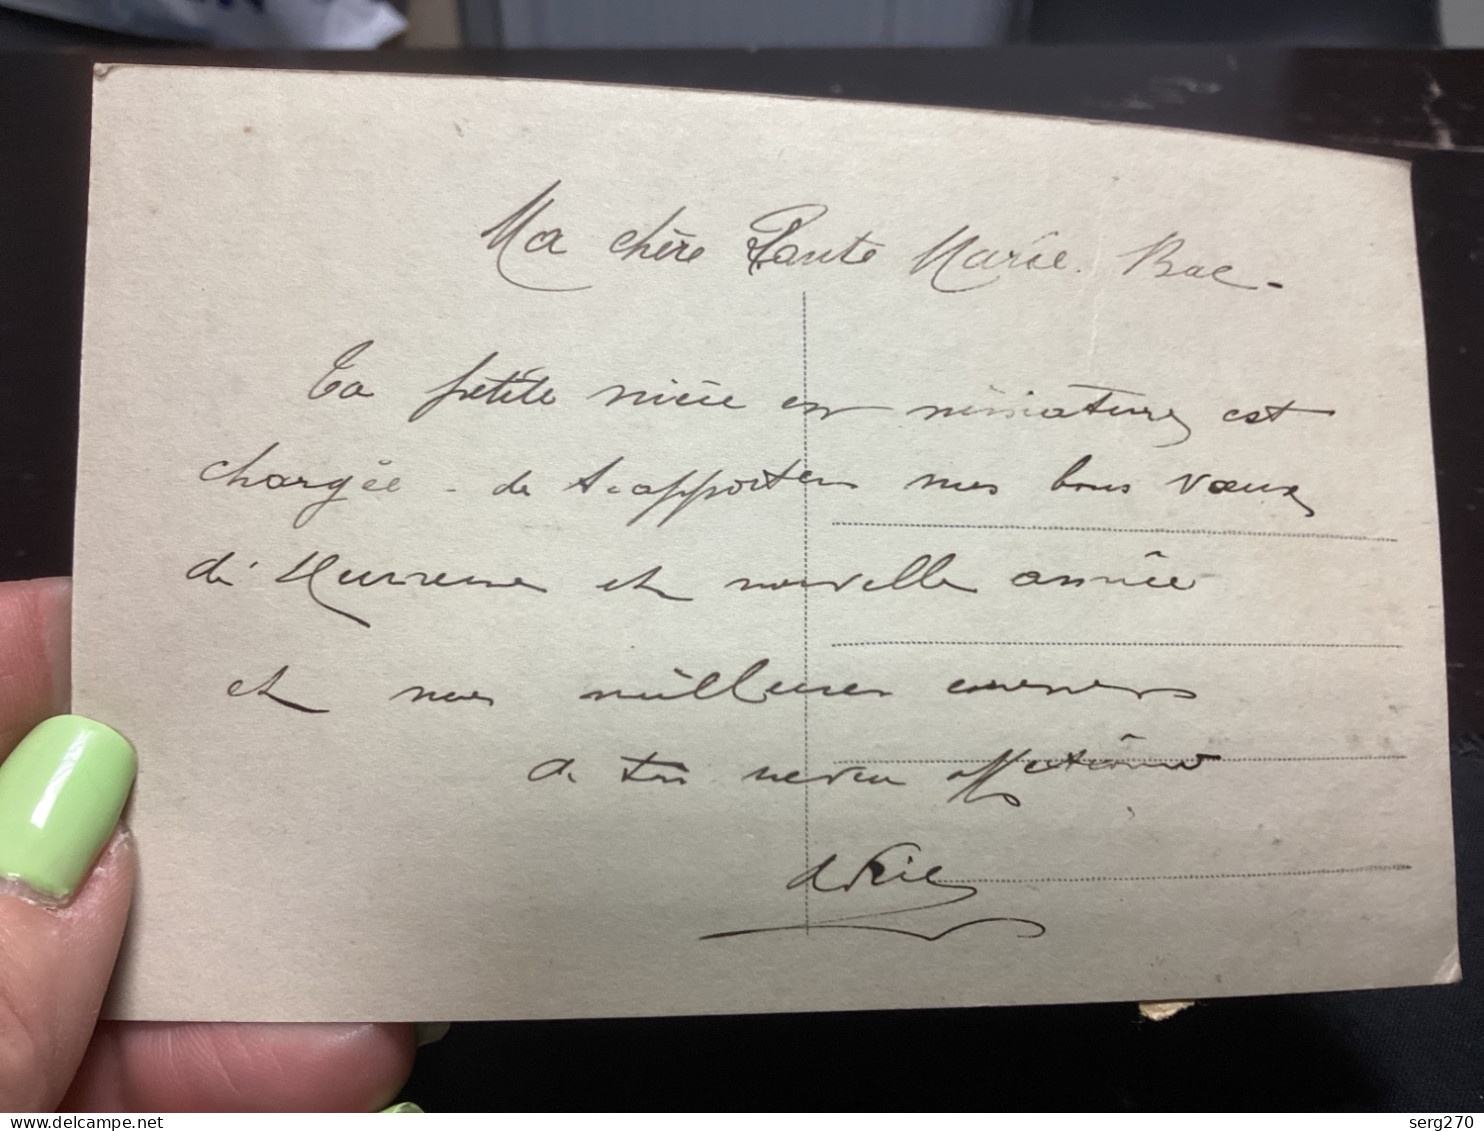 Ma chère Tante Marie.
Ta petite nièce en miniature est
chargée - de t'apporter mes bons vœux
d'Heureuse et nouvelle année
et mes meilleures
de ton neveu affectionné
serg270